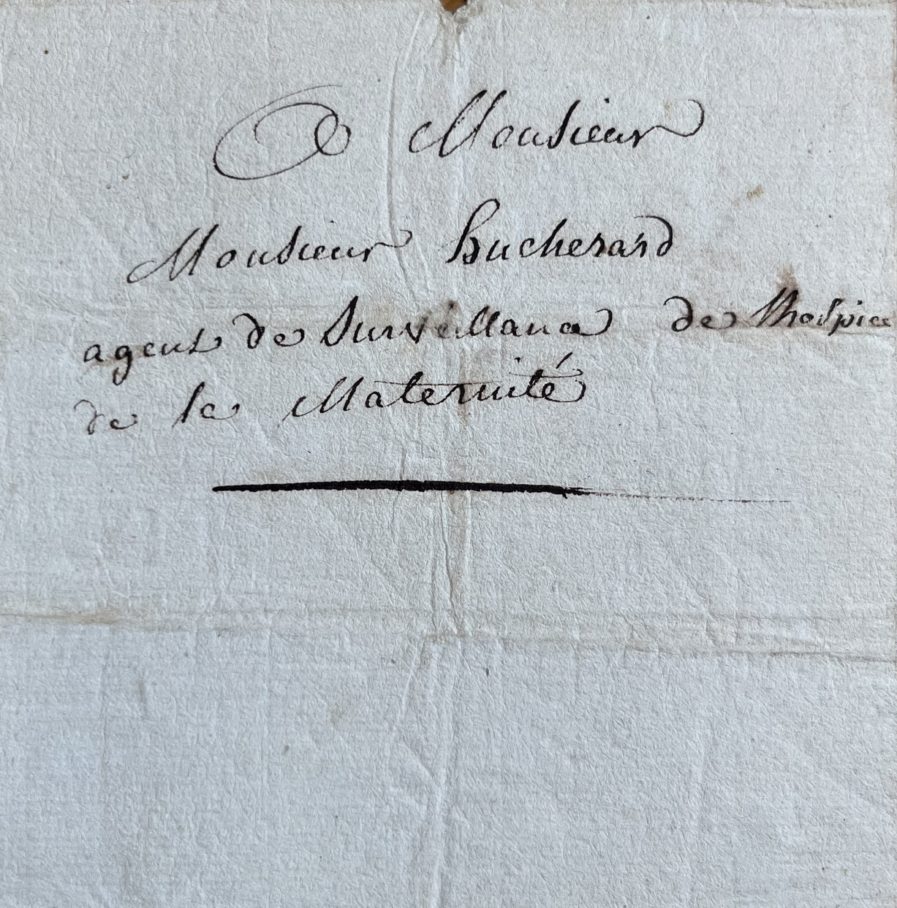 A Monsieur
Monsieur Hucherard
agent de Surveillance de Lhospice
de la Maternité